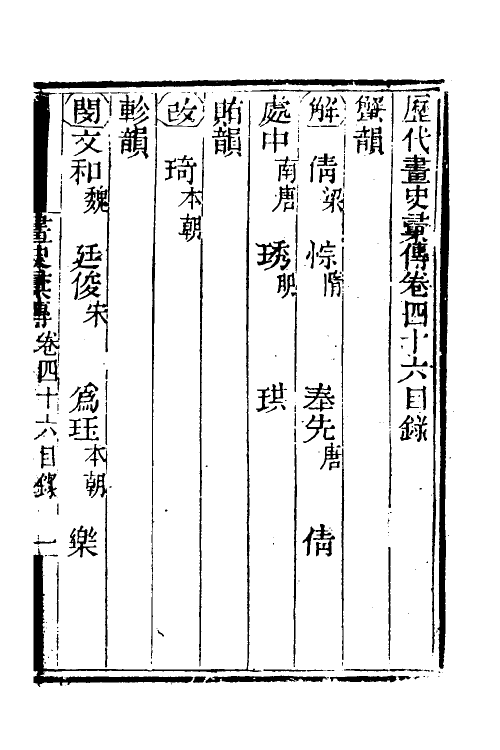 歷代畫史彙傳卷四十六目錄
蟹韻
解 倩梁 悰隋 奉先唐 倩
處中南唐 琇明 珙
賄韻
改 琦本朝
軫韻
閔 文和魏 廷俊宋 爲珏本朝 樂
畫史彙傳 卷四十六目錄 一